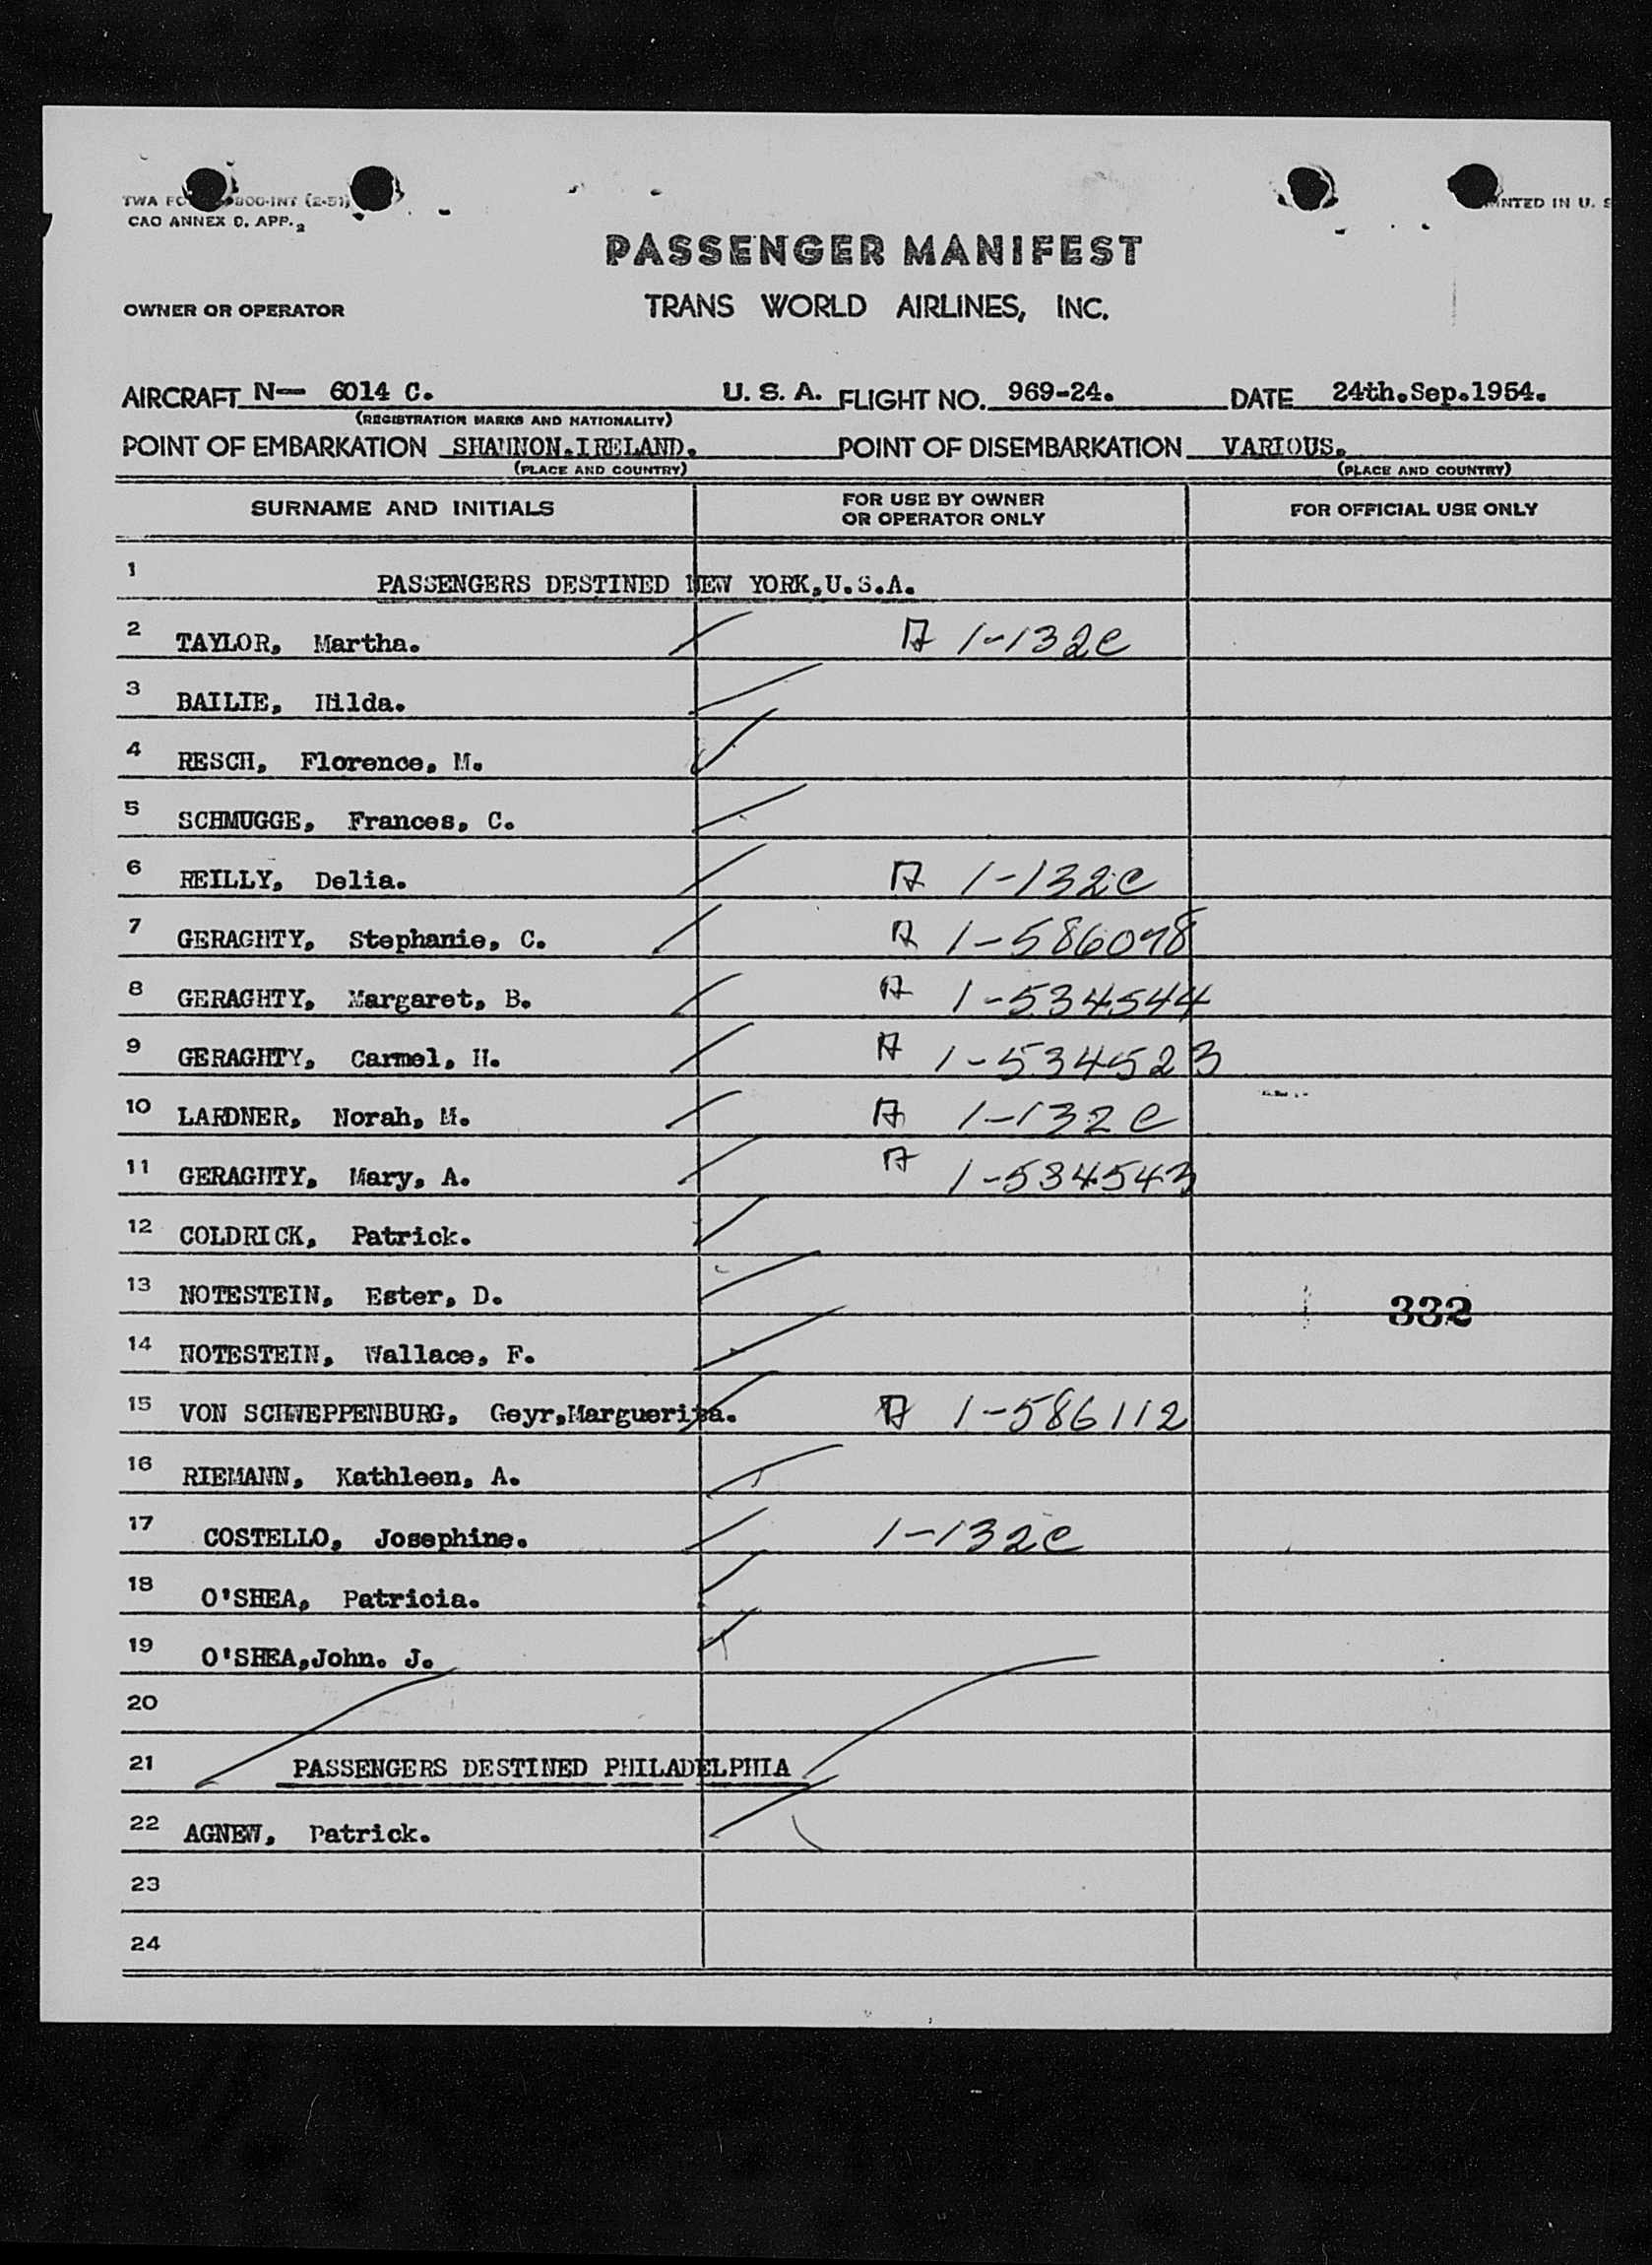 TWA
800-INT (2-51)
CAO ANNEX 9, APP. 2
PRINTED IN U. S
PASSENGER MANIFEST
OWNER OR OPERATOR TRANS WORLD AIRLINES, INC.
AIRCRAFT N— 6014 C. U. S. A. FLIGHT NO. 969-24. DATE 24th.Sep.1954.
(REGISTRATION MARKS AND NATIONALITY)
POINT OF EMBARKATION SHANNON.IRELAND. POINT OF DISEMBARKATION VARIOUS.
(PLACE AND COUNTRY) (PLACE AND COUNTRY)
SURNAME AND INITIALS FOR USE BY OWNER OR OPERATOR ONLY FOR OFFICIAL USE ONLY
1 PASSENGERS DESTINED NEW YORK,U.S.A.
2 TAYLOR, Martha. A 1-132c
3 BAILIE, Hilda.
4 RESCH, Florence, M.
5 SCHMUGGE, Frances, C.
6 REILLY, Delia. A 1-132c
7 GERAGHTY, Stephanie, C. A 1-586078
8 GERAGHTY, Margaret, B. A 1-534544
9 GERAGHTY, Carmel, H. A 1-534523
10 LARDNER, Norah, M. A 1-132c
11 GERAGHTY, Mary, A. A 1-534543
12 COLDRICK, Patrick.
13 NOTESTEIN, Ester, D. 332
14 NOTESTEIN, Wallace, F.
15 VON SCHWEPPENBURG, Geyr,Marguerita. A 1-586112
16 RIEMANN, Kathleen, A.
17 COSTELLO, Josephine. 1-132c
18 O'SHEA, Patricia.
19 O'SHEA,John. J.
20
21 PASSENGERS DESTINED PHILADELPHIA
22 AGNEW, Patrick.
23
24